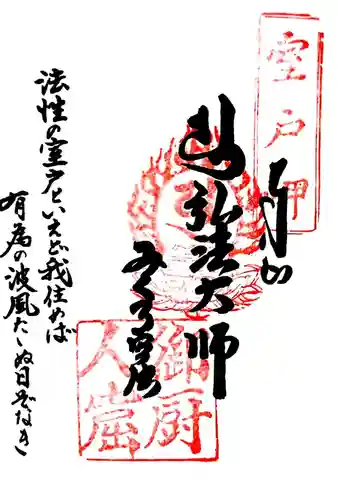 室戸岬
弘法大師
みくろど
御厨
人窟
法性の室戸といえど我住めば
有為の波風たゝぬ日ぞなき